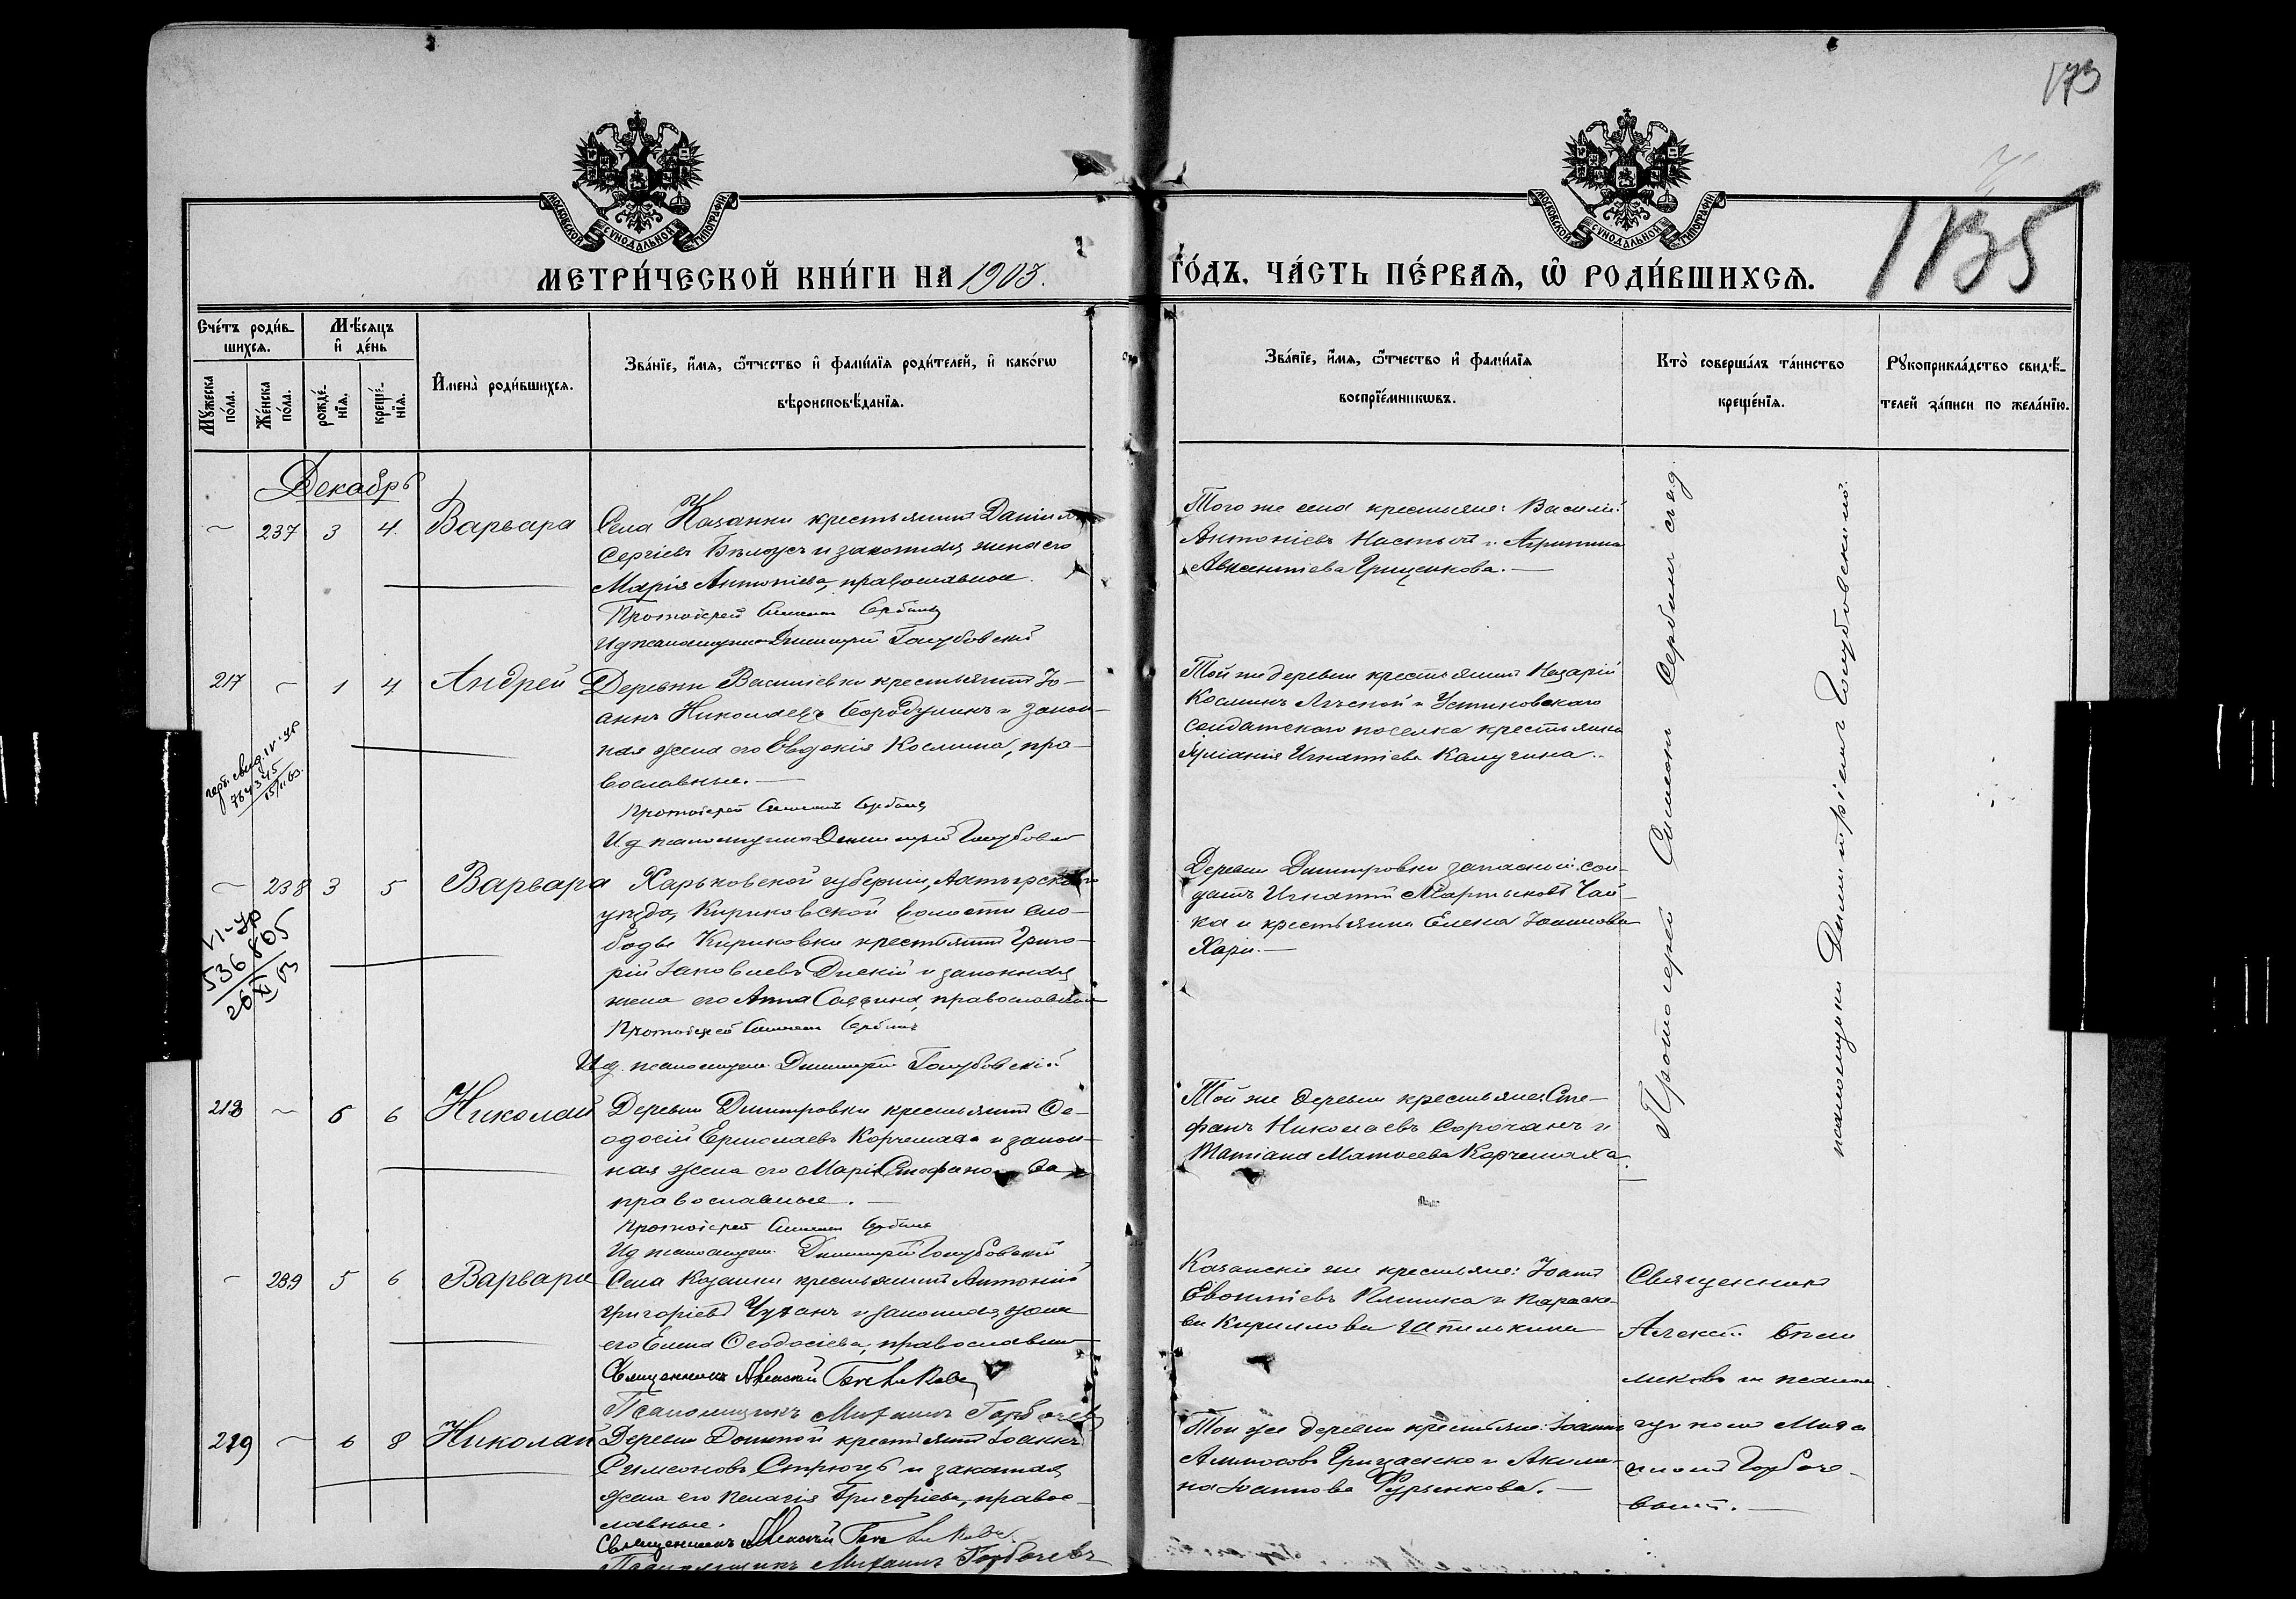 173
1135
МОСКОВСКОЙ СѴНОДАЛЬНОЙ ТИПОГРАФІИ
МОСКОВСКОЙ СѴНОДАЛЬНОЙ ТИПОГРАФІИ
МЕТРИ́ЧЕСКОЙ КНИ́ГИ НА 1903. ГО́ДЪ, ЧА́СТЬ ПЕ́РВАѦ, Ѡ҆ РОДИ́ВШИХСѦ.
Сче́тъ роди́в-
шихсѧ.
Мѣ́сѧцъ
и҆ де́нь
Мꙋ́жеска
по́ла.
Же́нска
по́ла.
рожде́-
нїѧ.
креще́-
нїѧ.
И҆мена̀ роди́вшихсѧ.
Зва́нїе, и҆́мѧ, ѻ҆́тчество и҆ фами́лїѧ роди́телей, и҆ како́гѡ
вѣроисповѣ́данїѧ.
Зва́нїе, и҆́мѧ, ѻ҆́тчество и҆ фами́лїѧ
воспрїе́мникѡвъ.
Кто̀ соверша́лъ та́инство
креще́нїѧ.
Рꙋкоприкла́дство свидѣ́-
телей за́писи по жела́нїю.
Декабрь
237 3 4. Варвара
Села Казанки крестьянинъ Даніилъ
Сергіевъ Бѣлоусъ и законная жена его
Марія Антоніева, православные.
Протоіерей Симеонъ Сербинъ
Ид псаломщика Димитрій Голубовскій
Того же села крестьяне: Василій
Антоніевъ и Агрипина
Авксентіева Грищенкова.
217 1 4 Андрей
Деревни Василіевки крестьянинъ Іо-
аннъ Николаевъ Бородулинъ и закон-
ная жена его Евдокія Космина, пра-
вославные.
Протоіерей Симеонъ Сербинъ
Ид псаломщика Димитрій Голубовскій
Той же деревни крестьянинъ Назарій
Косминъ и Устиновскаго
солдатского поселка крестьянка
Іуліанія Игнатіева Калугина.
764345
238 3 5 Варвара
Харьковской губерніи, Ахтырскаго
уѣзда, Кириковской волости сло-
боды Кириковки крестьянинъ Григо-
рій Іаковлевъ и законная
жена его Анна Саввина, православные
Протоіерей Симеонъ Сербинъ
Ид. псаломщика Димитрій Голубовскій
Деревни Димитровки запасный сол-
датъ Игнатій Мартыновъ Чай-
ка и крестьянка Елена Іоаннова
VI-УР
536805
26 XI 53
218 5 6 Николай
Деревни Димитровки крестьянинъ Ѳе-
одосій Ермолаевъ Корчемаха и закон-
ная жена его Марія Стефанова
православные.
Протоіерей Симеонъ Сербинъ
Ид псаломщика Димитрій Голубовскій
Той же деревни крестьяне: Сте-
фанъ Николаевъ Сорочанъ и
Татіана Матѳеева Корчемаха.
Протоіерей Симеонъ Сербинъ съ и.д
псаломщика Димитріемъ Голубовскимъ.
239 5 6 Варвара
Села Казанки крестьянинъ Антоній
Григоріевъ и законная жена
его Елена Ѳеодосіева, православные
Священникъ Алексій
Псаломщикъ Михаилъ Горбачевъ
Казанскіе же крестьяне: Іоаннъ
и Параске-
ва Кириллова
Священникъ
Алексій
и псалом-
щикомъ Миха
иломъ Горбаче-
вымъ.
219 6 8 Николай
Деревни крестьянинъ Іоаннъ
Сѵмеоновъ и законная
жена его Пелагія Григоріева, право-
славные.
Священникъ Алексій
Псаломщикъ Михаилъ Горбачевъ
Той же деревни крестьяне: Іоаннъ
Аммосовъ Грицаенко и Акили-
на Іоаннова Фурсенкова.